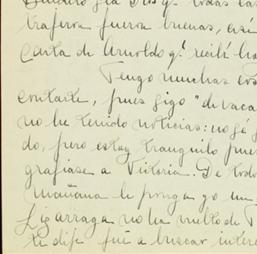 Quiera Dios q. todas las
trajeron fueran buenas, así
carta de Arnoldo q. recibí ho
Tengo muchas cos
contarte, pues sigo "de vaca
no he tenido noticias: no sé
do, pero estoy tranquilo pues
grafiase a Victoria. De todo
mañana le ponga yo un
Lizarraga no ha vuelto de
te dije fué a buscar intere